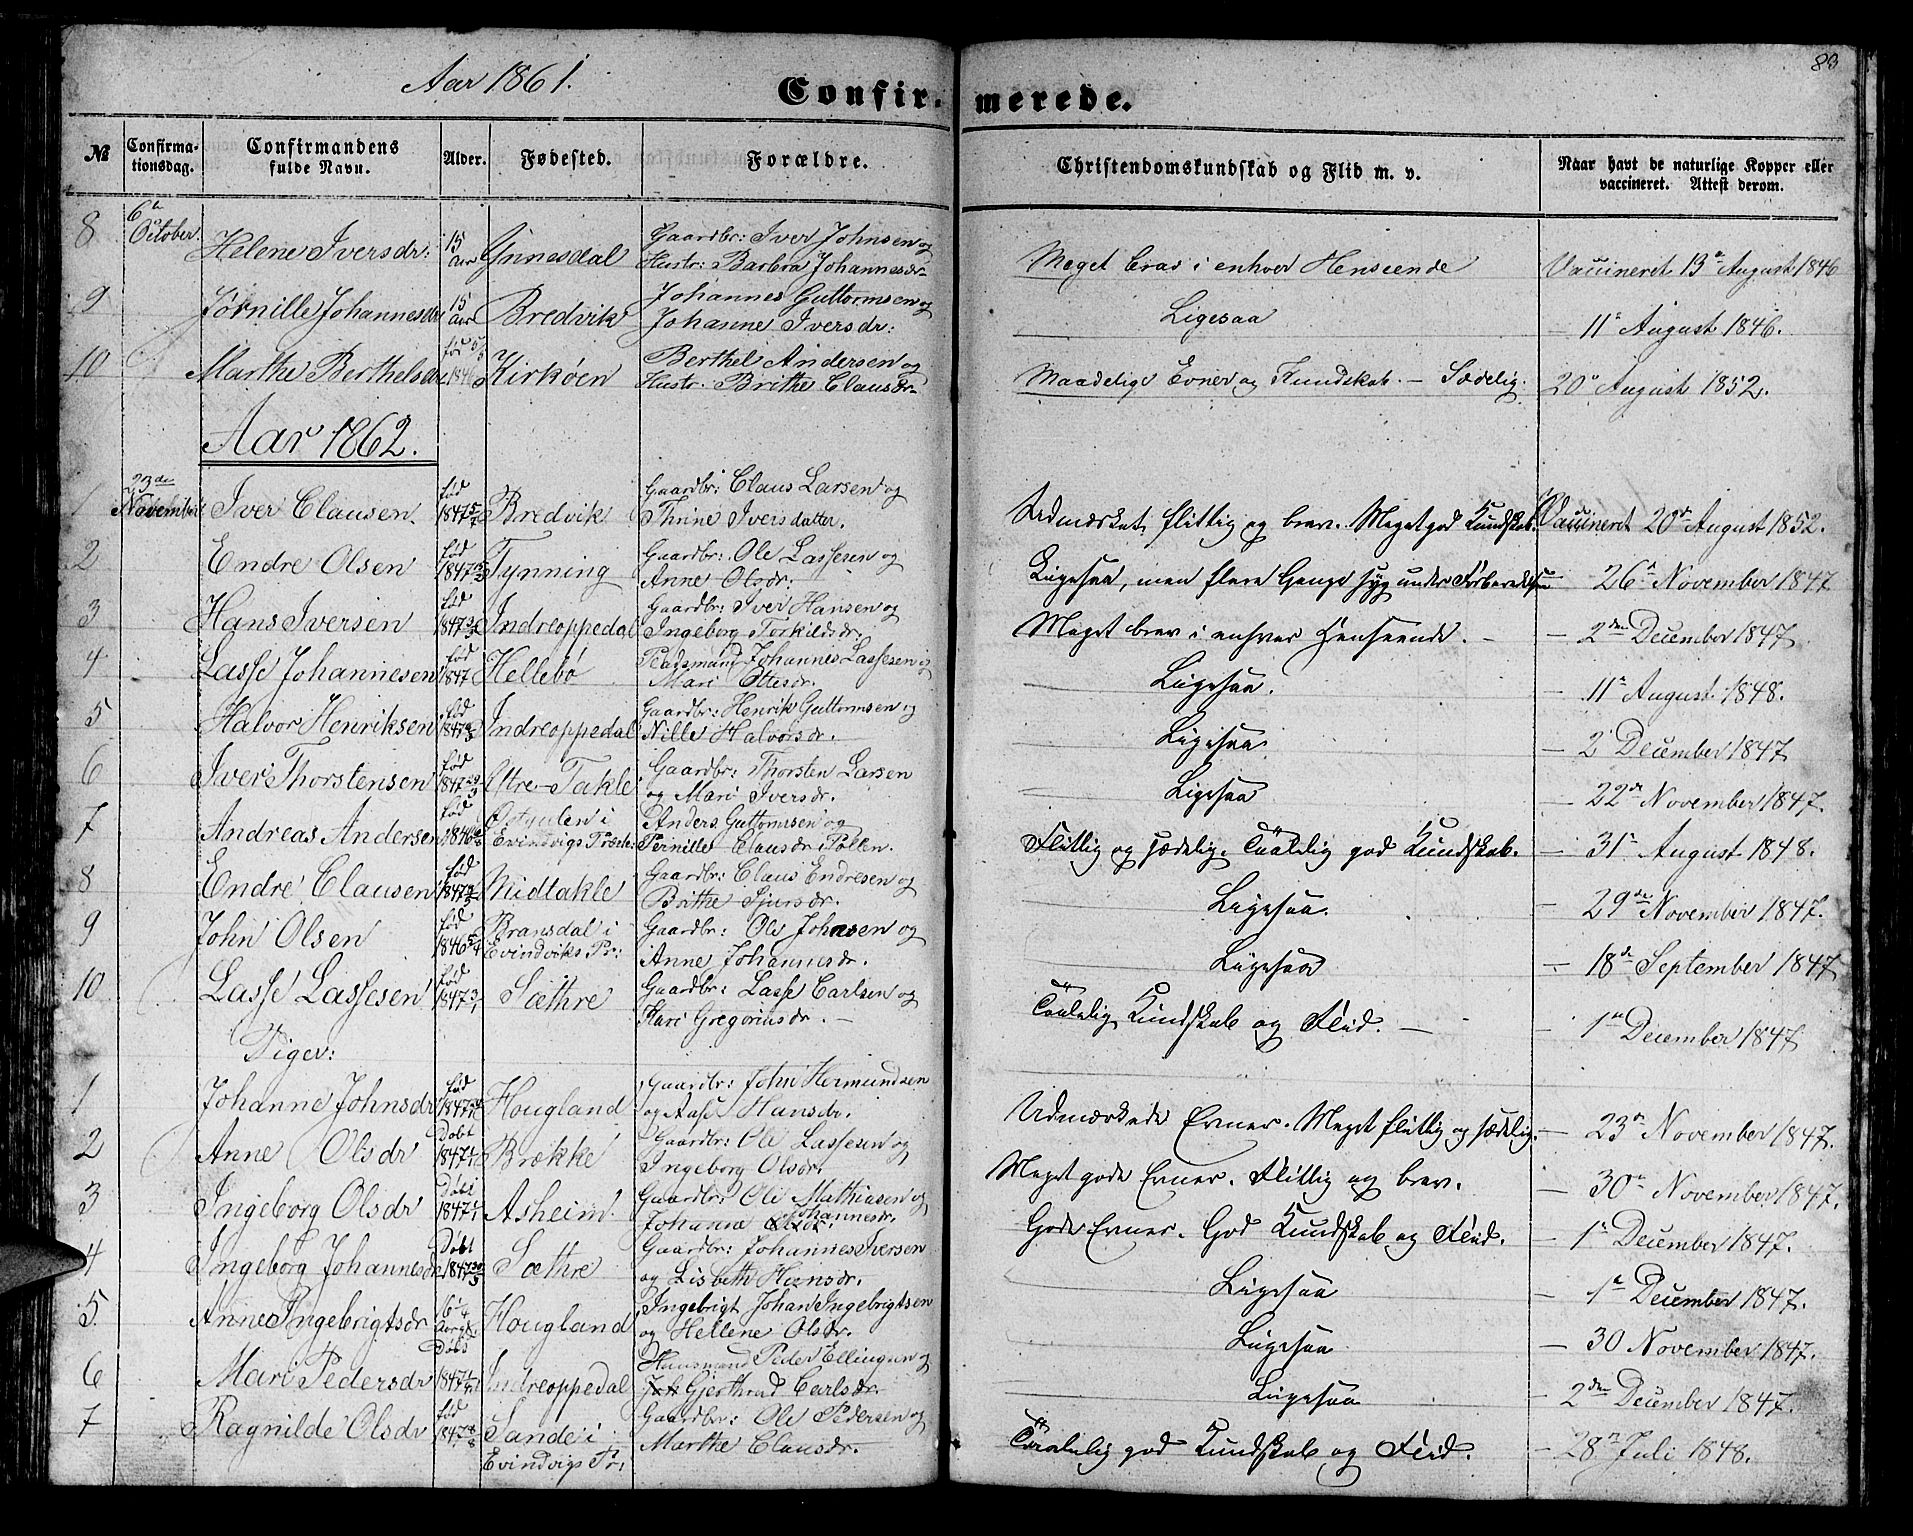 83
Aar 1861.
Confirmerede.
№ Confirmationsdag. Confirmandens fulde Navn. Alder. Fødested. Forældre. Christendomskundskab og Flid m. v. Naar havt de naturlige Kopper eller vaccineret. Attest derom.
8 6te October. Helene Iversdr: 15 Aar Ynnesdal Gaardbr: Iver Johnsen og Hustr: Barbra Johannesdr Meget brav i enhver Henseende Vaccineret 13de August 1846
9 Jørnille Johannesdr 15 Aar Bredvik Johannes Guttormsen og Johanne Iversdr: Ligesaa — 11te August 1846.
10 Marthe Berthelsdr fød 1846 Kirkøen Berthel Andersen og Hustr: Brithe Clausdr Maadelige Evner og Kundskab. — Sædelig. 20de August 1852.
Aar 1862.
1 23de November Iver Clausen. fød 1847 Bredvik Gaardbr: Claus Larsen og Thrine Iversdatter. Udmærket flittig og brav. Meget god Kundskab. Vaccineret 20de August 1852.
2 Endre Olsen fød 1847 Tynning Gaardbr: Ole Lassesen og Anne Olsdr: Ligesaa, men flere Gange syg under Forberedelsen — 26de November 1847
3 Hans Iversen fød 1847 Indreoppedal Gaardbr: Iver Hansen og Ingeborg Torkildsdr. Meget brav i enhver Henseende. — — 2den December 1847
4 Lasse Johannesen fød 1847 Hellebø Pladsmand Johannes Lassesen og Mari Ottesdr. Ligesaa. — 11te August 1848.
5 Halvor Henriksen fød 1847 Indreoppedal Gaardbr: Henrik Guttormsen og Nille Halvorsdr. Ligesaa — 2 December 1847
6 Iver Thorstensen fød 1847 Yttre-Takle Gaardbr: Thorsten Larsen og Mari Iversdr. Ligesaa — 22de November 1847.
7 Andreas Andersen fød 1846 i Evindvigs Præstr: Anders Guttormsen og Pernille Clausdr i Pollen. Flittig og sædelig. Taalelig god Kundskab. — 31te August 1848.
8 Endre Clausen fød 1847 Midtakle Gaardbr: Claus Endresen og Brithe Sjursdr. Ligesaa. — 29de November 1847.
9 John Olsen fød 1846 Bransdal i Evindviks Pr: Gaardbr: Ole Johnsen og Anne Johannesdr. Ligesaa — 18de September 1847
10 Lasse Lassesen fød 1847 Sæthre Gaardbr: Lasse Carlsen og Kari Gregoriusdr. — Taalelig Kundskab og Flid. — — 1te December 1847
Piger:
1 Johanne Johnsdr fød 1847 Hougland Gaardbr: John Hermundsen og Aase Hansdr. Udmærkede Evner. Meget flittig og sædelig. — 23de November 1847.
2 Anne Olsdr Døbt 1847 Brække Gaardbr: Ole Lassesen og Ingeborg Olsdr. Meget gode Evner. Flittig og brav. — 30te November 1847.
3 Ingeborg Olsdr Døbt 1847 Asheim Gaardbr: Ole Mathiasen og Johanne Johannesdr. Gode Evner. God Kundskab og Flid. — 1te December 1847.
4 Ingeborg Johannesdr Døbt 1847 Sæthre Gaardbr: Johannes Iversen og Lisbeth Hansdr. Ligesaa — 1te December 1847.
5 Anne Ingebrigtsdr Hougland Ingebrigt Johan Ingebrigtsen og Hellene Olsdr. Ligesaa — 30 November 1847.
6 Mari Pedersdr Døbt 1847 Indreoppedal Huusmand Peder Ellingsen og Gjerthrud Carlsdr. Ligesaa — 2den December 1847.
7 Ragnilde Olsdr fød 1847 Sande i Evindvigs Pr: Gaardbr: Ole Pedersen og Marthe Clausdr. Taalelig god Kundskab og Flid. — 28de Juli 1848.